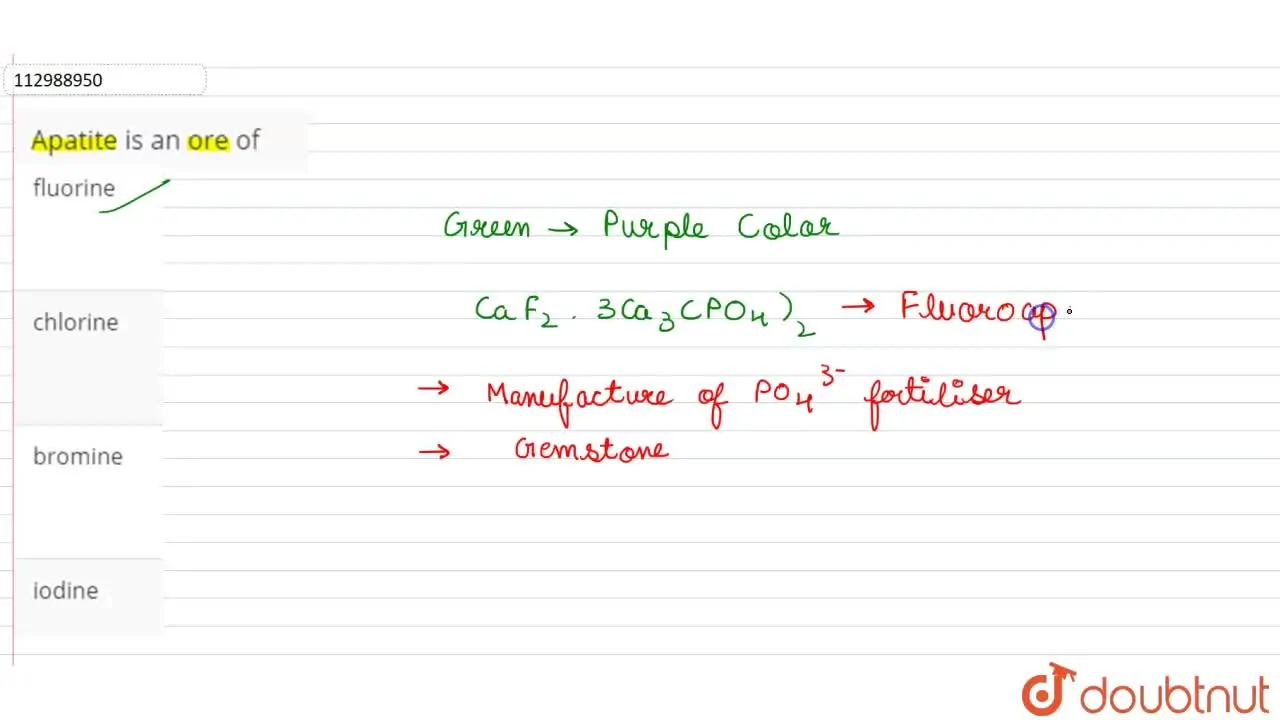 112988950
Apatite is an ore of
fluorine
chlorine
bromine
iodine
Green → Purple Color
CaF₂ . 3Ca₃(PO₄)₂ → Fluoroap
→ Manufacture of PO₄³⁻ fertiliser
→ Gemstone
doubtnut